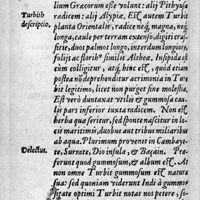 lium Græcorum esse volunt: alij Pithyusa
Turbith radicem: alij Alypiæ. Est autem Turbit
descriptio. planta Orientalis, radice nec magna, nec
longa, caule per terram extenso, digiti cras
sitie, duos palmos longo, interdum longiore,
folijs ac floribus similis Altheæ. Insipida est
cum colligitur, atq; hinc est, quòd etiam
postea nō deprehenditur acrimonia in Tur
bit legitimo, licet non purget sine mole
stia. Est verò duntaxat vtilis & gummosa cau
lis pars inferior iuxta radicem. Non est
herba quæ seritur, sed sponte nascitur in
cis maritimis, duobus aut tribus miliaribus
ab aqua. Plurimum prouenit in Cambaye
te, Surrate, Dio insula, & Baçain. Præ
Delectus. ferunt quod gummosum, & album est. At
non omne Turbit gummosum est natura
sua: sed quoniam viderunt Indi à gummo
sitate optimi Turbit notas nos petere, si